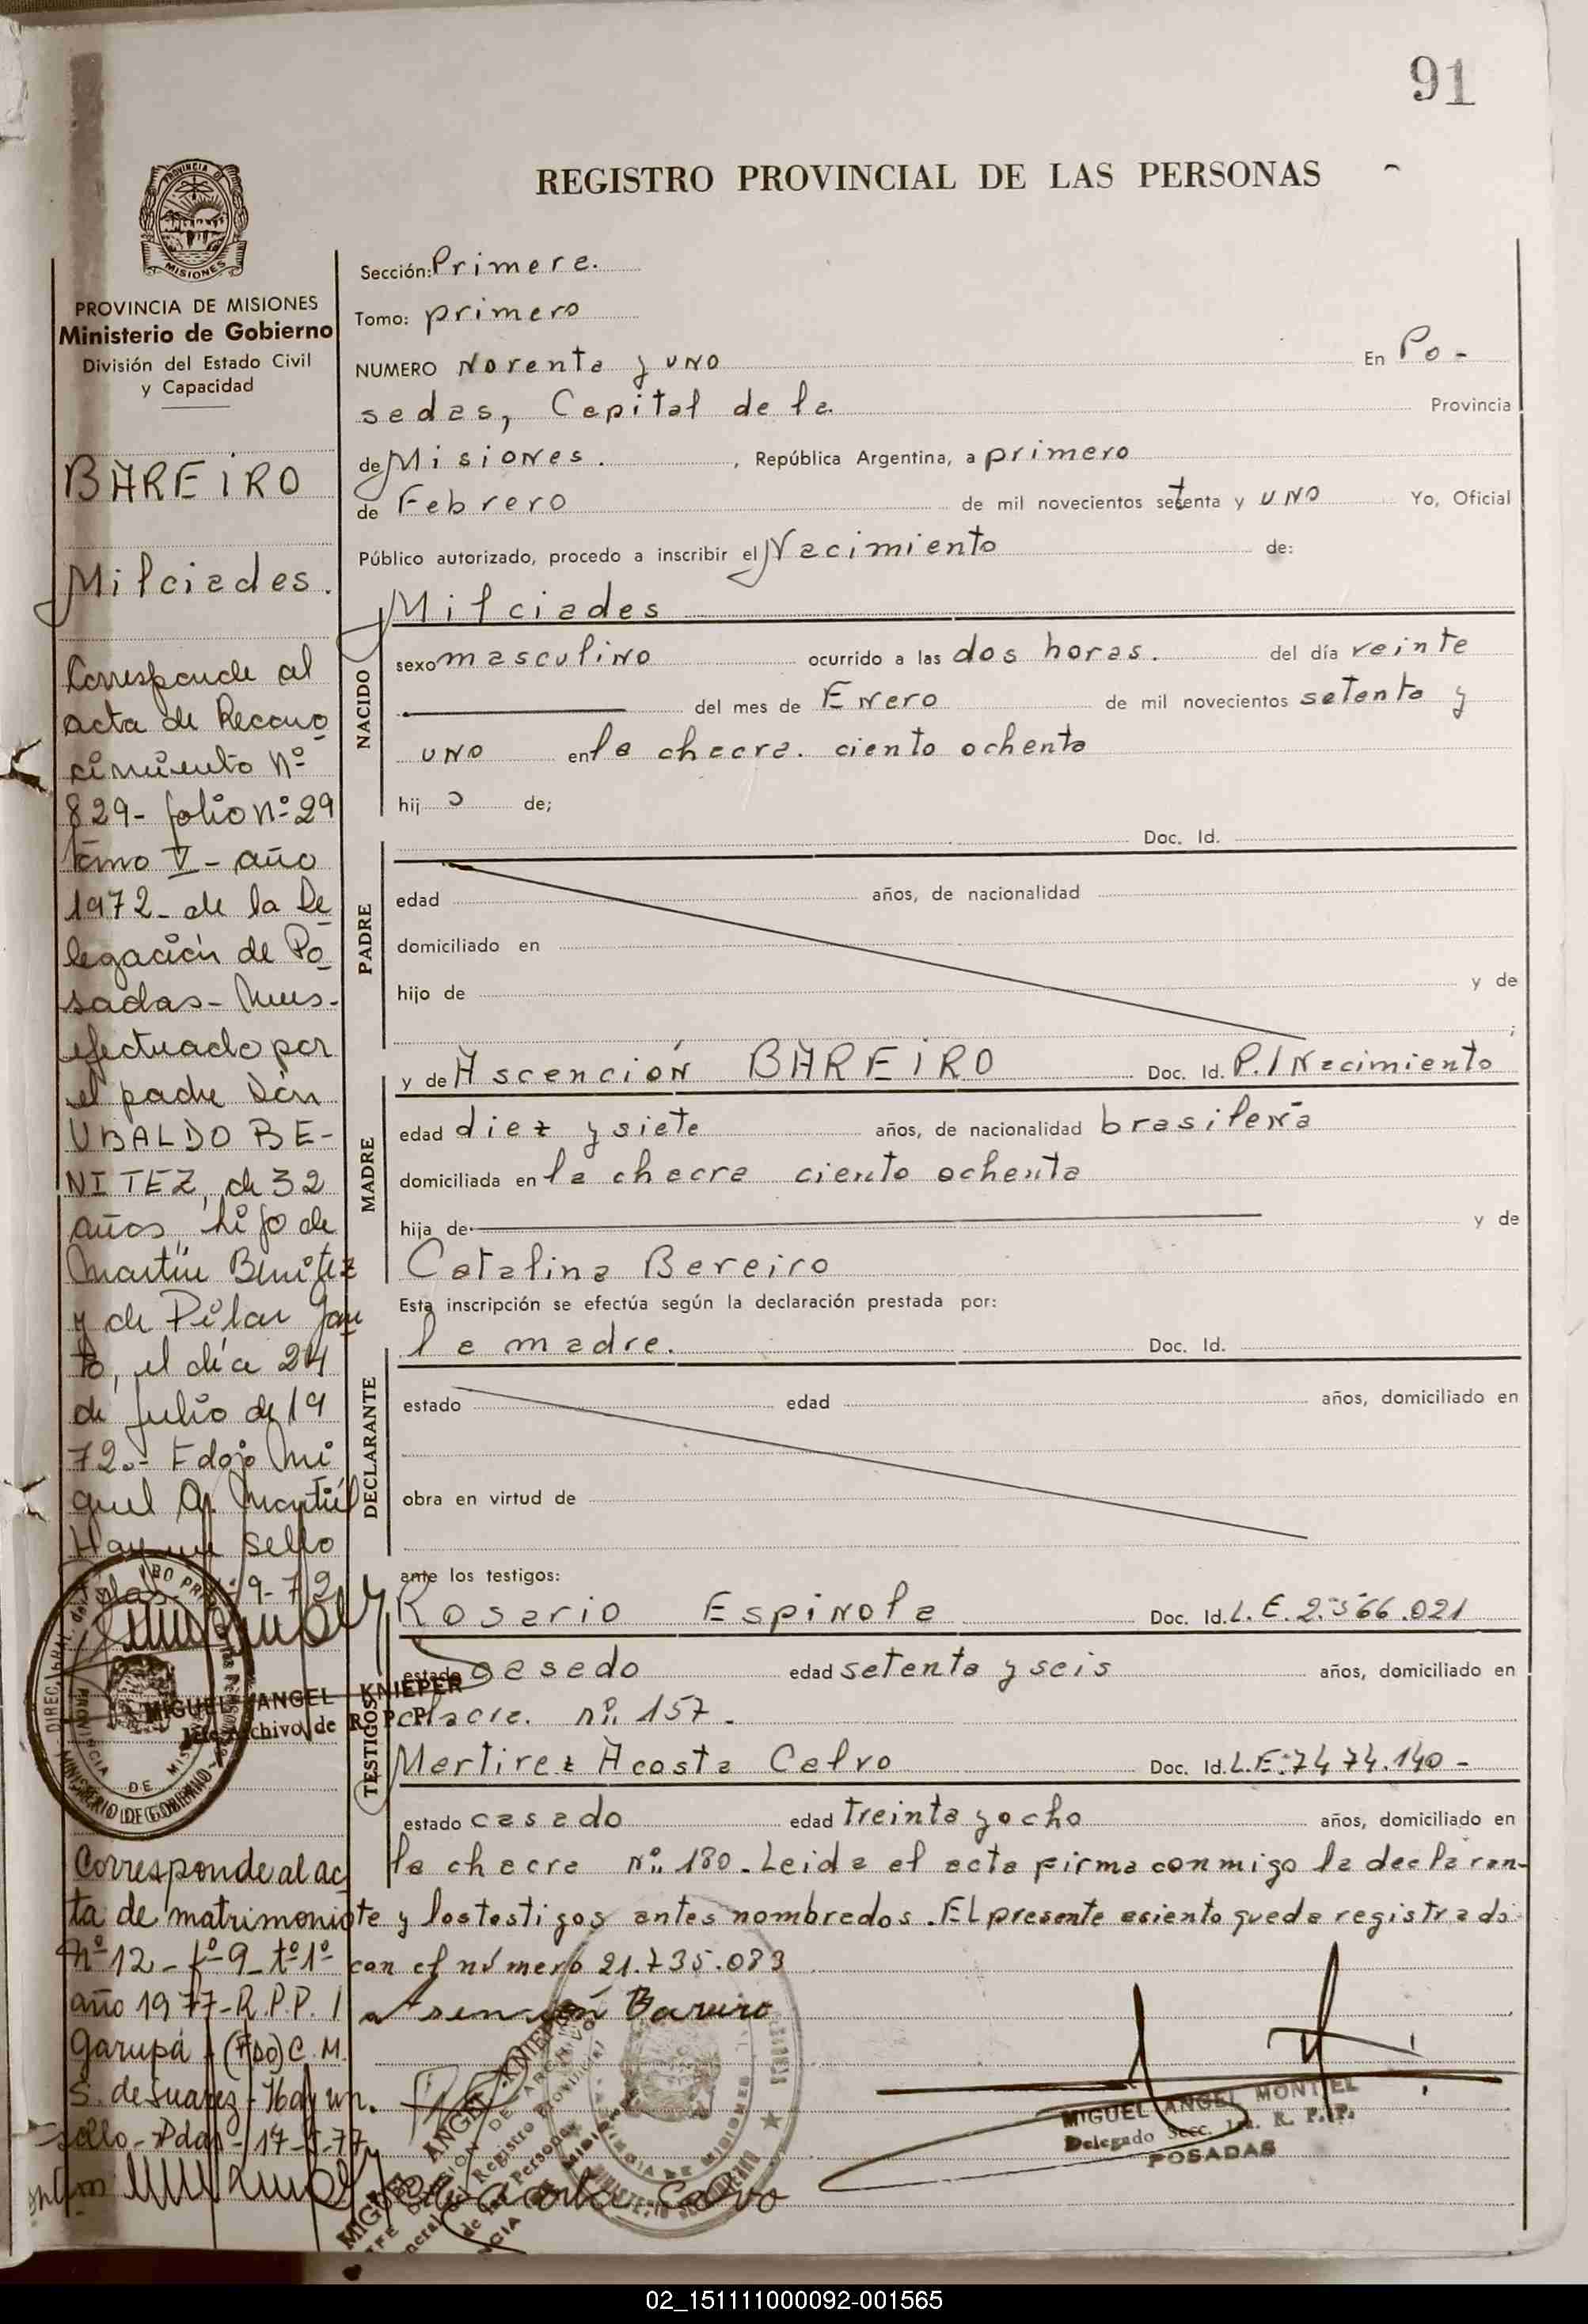 91
REGISTRO PROVINCIAL DE LAS PERSONAS
PROVINCIA DE MISIONES
Ministerio de Gobierno
División del Estado Civil
y Capacidad
BAREIRO
Milciades.
Corresponde al
acta de Recono
cimiento Nº
829- folio Nº 29
tomo V - año
1972- de la De
legación de Po
sadas- Mnes-
efectuado por
el padre Dón
UBALDO BE-
NITEZ, de 32
años, hijo de
Martín Benitez
y de Pilar
to, el día 24
de Julio de 19
72.- Fdo: Mi
guel A. Montiel
Hay un sello
9-72
MIGUEL ANGEL KNIEPER
Jefe Archivo de R. P. P.
Corresponde al ac
ta de matrimonio
Nº 12 - fº 9 - tº 1º
año 1977-R.P.P.
Garupá - (FDO) C. M.
S. de Suarez - Hay un
sello - Pdas - 17-5-77
Sección: Primera.
Tomo: primero
NUMERO Noventa y UNO En Po-
sadas, Capital de la Provincia
de Misiones. , República Argentina, a primero
de Febrero de mil novecientos setenta y UNO Yo, Oficial
Público autorizado, procedo a inscribir el Nacimiento de:
NACIDO
Milciades
sexo masculino ocurrido a las dos horas. del día veinte
del mes de Enero de mil novecientos setenta y
UNO en la chacra. ciento ochenta
hij o de;
PADRE
Doc. Id.
edad años, de nacionalidad
domiciliado en
hijo de y de
;
MADRE
y de Ascención BAREIRO Doc. Id. P./Nacimiento
edad diez y siete años, de nacionalidad brasileña
domiciliada en la chacra ciento ochenta
hija de y de
Catalina Bareiro
Esta inscripción se efectúa según la declaración prestada por:
DECLARANTE
la madre. Doc. Id.
estado edad años, domiciliado en
obra en virtud de
ante los testigos:
TESTIGOS
Rosario Espinola Doc. Id. L.E. 2.566.021
estado casado edad setenta y seis años, domiciliado en
chacra. nº 157.
Martirez Acosta Calvo Doc. Id. L.E: 7474.140-
estado casado edad treinta y ocho años, domiciliado en
la chacra Nº 180. Leida el acta firma conmigo la declaran-
te y los testigos antes nombrados. El presente asiento queda registrado
con el número 21.735.083
Asención Bareiro
MIGUEL ANGEL MONTIEL
Delegado Secc. 1ra. R. P. P.
POSADAS
Acosta Calvo
02_151111000092-001565